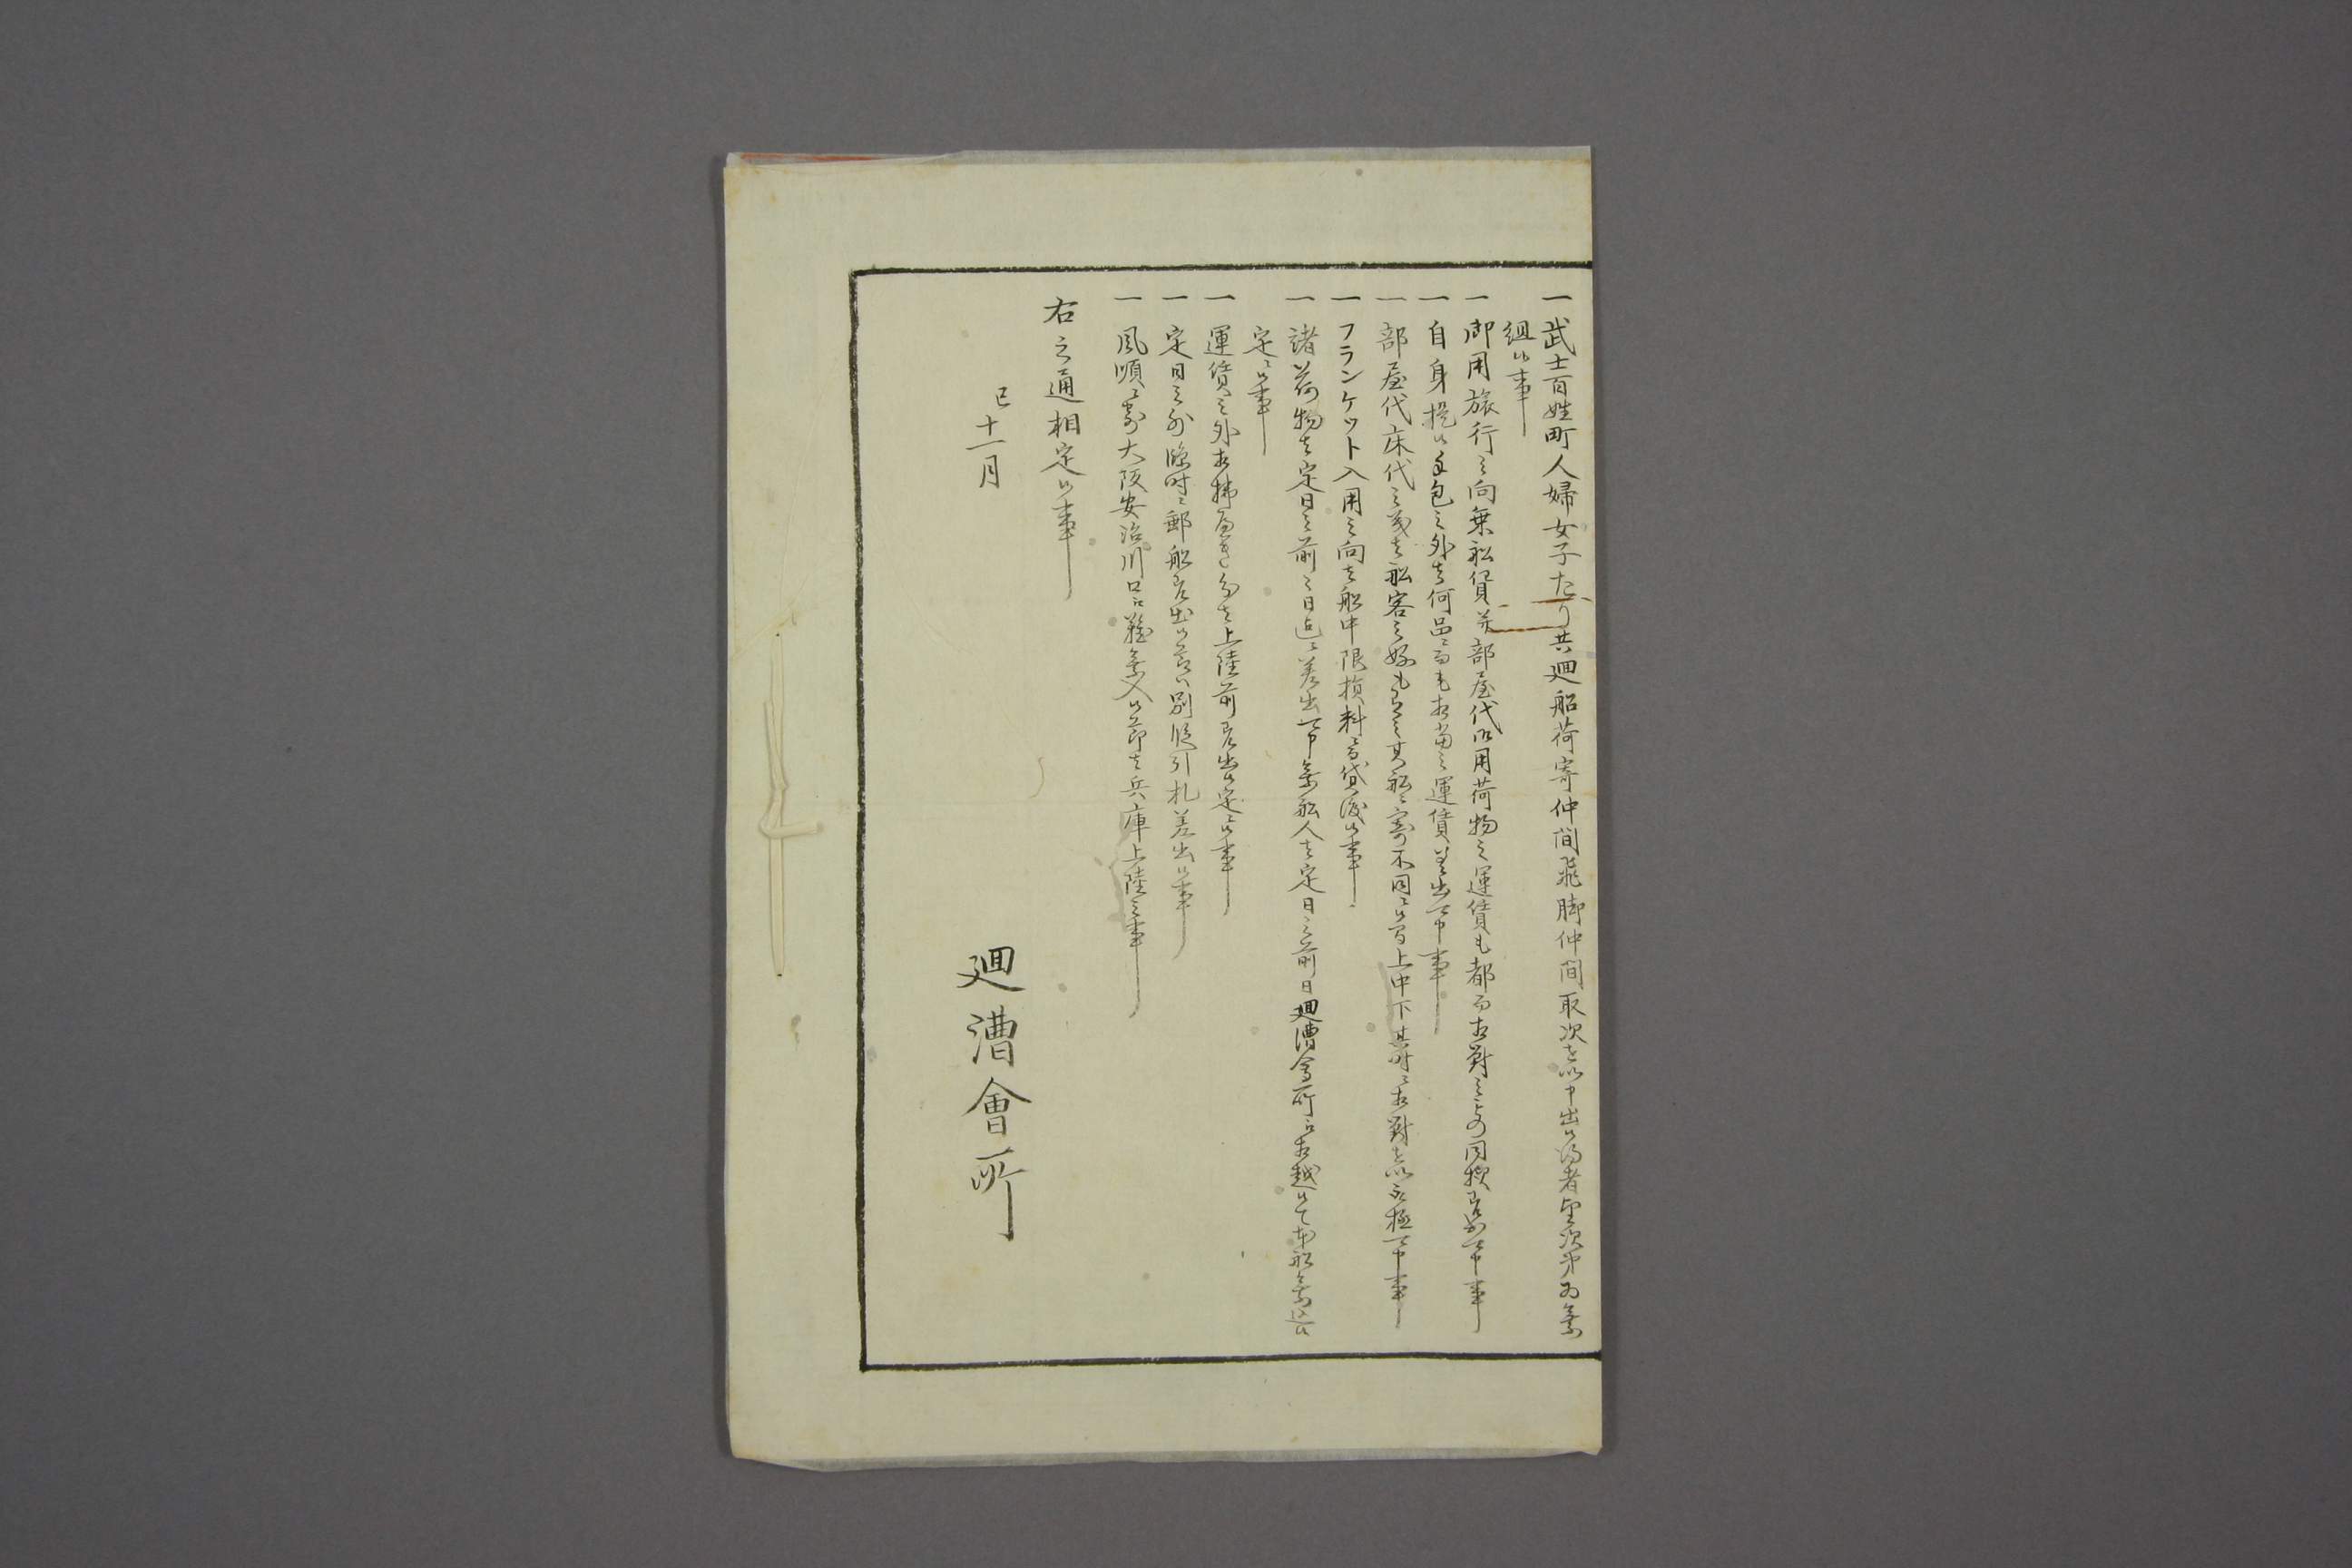 一武士百姓町人婦女子たり共廻船荷寄仲間飛脚仲間取次を以申出候得者望次第為乗
組候事
一御用旅行之向乗船賃并部屋代御用荷物之運賃も都而相對之上同様差別可申事
一自身提候手包之外者何品ニ而も相當之運賃差出可申事
一部屋代床代之義者船客之好も有之其船ニ寄不同ニ候間上中下其時ニ相對を以取極可申事
一フランケット入用之向者船中限損料ニ而貸渡候事
一諸荷物者定日之前之日迄ニ差出可申乗船人者定日之前日廻漕會所ニ相越候て本船乗込候
定ニ候事
一運賃之外相拂へき分者上陸前差出候定ニ候事
一定日之外臨時ニ郵船差出候節ハ別段引札差出候事
一風順ニ寄大阪安治川口ニ難乗入候節者兵庫上陸之事
右之通相定候事
巳十一月
廻漕會所